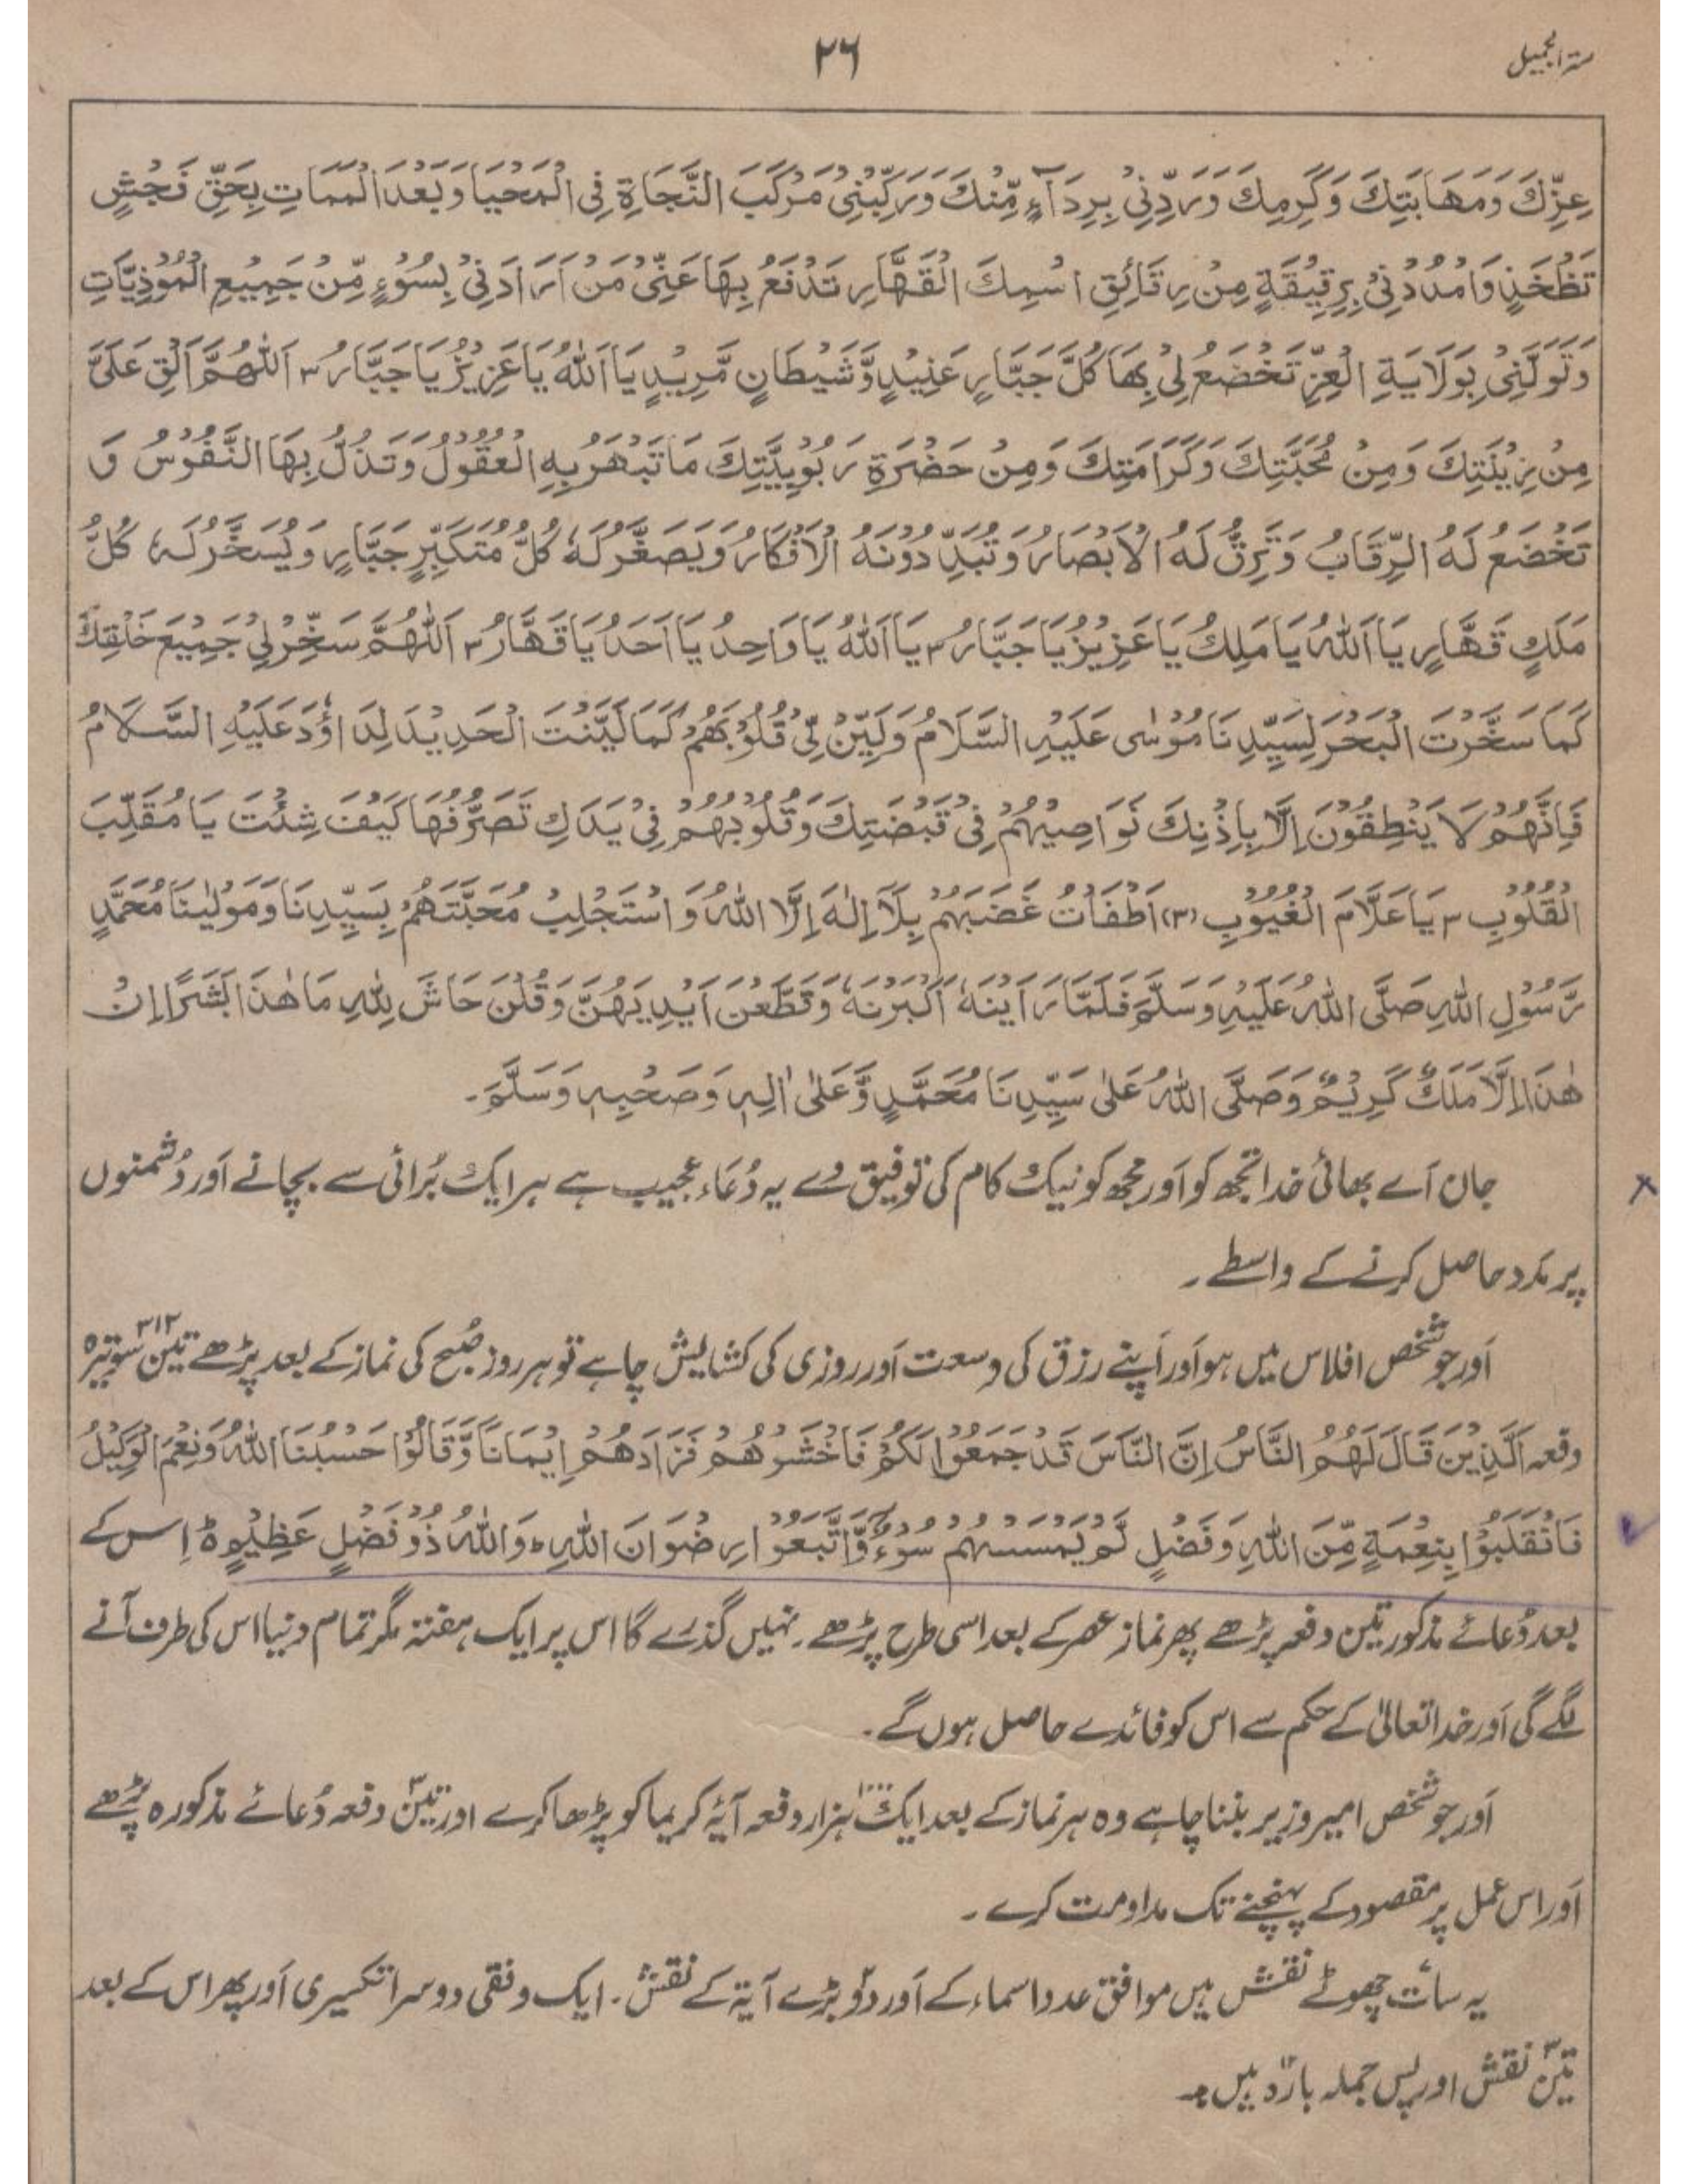 سرّ الجمیل
۲۶
عِزِّكَ وَمَهَابَتِكَ وَكَرَمِكَ وَرَدِّنِیْ بِرِدَآءٍ مِّنْكَ وَرَكِّبْنِیْ مَرْكَبَ النَّجَاةِ فِی الْمَحْیَا وَبَعْدَ الْمَمَاتِ بِحَقِّ فَجُشٍ
تَظْخَذٍ وَامْدُدْنِیْ بِرَقِیْقَةٍ مِنْ رَقَائِقِ اسْمِكَ الْقَهَّارِ تَدْفَعُ بِهَا عَنِّیْ مَنْ اَرَادَنِیْ بِسُوْءٍ مِّنْ جَمِیْعِ الْمُوْذِیَّاتِ
وَتَوَلَّنِیْ بِوَلَایَةِ الْعِزِّ تَخْضَعُ لِیْ بِهَا كُلُّ جَبَّارٍ عَنِیْدٍ وَّشَیْطَانٍ مَّرِیْدٍ یَا اَللّٰهُ یَا عَزِیْزُ یَا جَبَّارُ ۳ اَللّٰهُمَّ اَلْقِ عَلَیَّ
مِنْ زِیْنَتِكَ وَمِنْ مُحَبَّتِكَ وَكَرَامَتِكَ وَمِنْ حَضْرَةِ رَبُوْبِیَّتِكَ مَا تَبْهَرُ بِهِ الْعُقُوْلُ وَتَذُلُّ بِهَا النَّفُوْسُ وَ
تَخْضَعُ لَهُ الرِّقَابُ وَتَرِقُّ لَهُ الْاَبْصَارُ وَتُبَدِّ دُوْنَهُ الْاَفْكَارُ وَیَصْغُرُ لَهٗ كُلُّ مُتَكَبِّرٍ جَبَّارٍ وَیُسَخَّرُ لَهٗ كُلُّ
مَلَكٍ قَهَّارٍ یَا اَللّٰهُ یَا مَلِكُ یَا عَزِیْزُ یَا جَبَّارُ ۳ یَا اَللّٰهُ یَا وَاحِدُ یَا اَحَدُ یَا قَهَّارُ ۳ اَللّٰهُمَّ سَخِّرْ لِیْ جَمِیْعَ خَلْقِكَ
كَمَا سَخَّرْتَ الْبَحْرَ لِسَیِّدِنَا مُوْسٰی عَلَیْهِ السَّلَامُ وَلَیِّنْ لِّیْ قُلُوْبَهُمْ كَمَا لَیَّنْتَ الْحَدِیْدَ لِدَاوٗدَ عَلَیْهِ السَّلَامُ
فَاِنَّهُمْ لَا یَنْطِقُوْنَ اِلَّا بِاِذْنِكَ نَوَاصِیْهِمْ فِیْ قَبْضَتِكَ وَقُلُوْبُهُمْ فِیْ یَدَكِ تَصَرُّفُهَا كَیْفَ شِئْتَ یَا مُقَلِّبَ
الْقُلُوْبِ ۳ یَا عَلَّامَ الْغُیُوْبِ (۳) اَطْفَاْتُ غَضَبَهُمْ بِلَآ اِلٰهَ اِلَّا اللّٰهُ وَاسْتَجْلِبُ مُحَبَّتَهُمْ بِسَیِّدِنَا وَمَوْلٰینَا مُحَمَّدٍ
رَّسُوْلِ اللّٰهِ صَلَّی اللّٰهُ عَلَیْهِ وَسَلَّمَ فَلَمَّا رَاَیْنَهٗ اَكْبَرْنَهٗ وَقَطَّعْنَ اَیْدِیَهُنَّ وَقُلْنَ حَاشَ لِلّٰهِ مَا هٰذَا بَشَرًا اِنْ
هٰذَا اِلَّا مَلَكٌ كَرِیْمٌ وَصَلَّی اللّٰهُ عَلٰی سَیِّدِنَا مُحَمَّدٍ وَّعَلٰی اٰلِهٖ وَصَحْبِهٖ وَسَلَّمَ۔
جان اَے بھائی خدا تجھ کو اَور مجھ کو نیک کام کی توفیق دے یہ دُعاء عجیب ہے ہر ایک بُرائی سے بچانے اَور دُشمنوں
پر مدد حاصل کرنے کے واسطے۔
اَور جو شخص افلاس میں ہو اَور اَپنے رزق کی وسعت اَور روزی کی کشایش چاہے تو ہر روز صُبح کی نماز کے بعد پڑھے تین سو تیرہ ۳۱۳
دفعہ اَلَّذِیْنَ قَالَ لَهُمُ النَّاسُ اِنَّ النَّاسَ قَدْ جَمَعُوْا لَكُمْ فَاخْشَوْهُمْ فَزَادَهُمْ اِیْمَانًا وَّقَالُوْا حَسْبُنَا اللّٰهُ وَنِعْمَ الْوَكِیْلُ
فَانْقَلَبُوْا بِنِعْمَةٍ مِّنَ اللّٰهِ وَفَضْلٍ لَّمْ یَمْسَسْهُمْ سُوْٓءٌ وَّاتَّبَعُوْا رِضْوَانَ اللّٰهِ ؕ وَاللّٰهُ ذُوْ فَضْلٍ عَظِیْمٍ ہ اِس کے
بعد دُعائے مذکور تین دفعہ پڑھے پھر نماز عصر کے بعد اسی طرح پڑھے۔ نہیں گذرے گا اس پر ایک ہفتہ مگر تمام دنیا اس کی طرف آنے
لگے گی اَور خدا تعالیٰ کے حکم سے اس کو فائدے حاصل ہوں گے۔
اَور جو شخص امیر وزیر بننا چاہے وہ ہر نماز کے بعد ایک ۱۰۰۰ ہزار دفعہ آیۂ کریما کو پڑھا کرے اور تین ۳ دفعہ دُعائے مذکورہ پڑھے
اَور اس عمل پر مقصود کے پہنچنے تک مداومت کرے۔
یہ سات ۷ چھوٹے نقش ہیں موافق عدد اسماء کے اَور دو ۲ بڑے آیۃ کے نقش۔ ایک وفقی دوسرا تکسیری اَور پھر اس کے بعد
تین ۳ نقش اور پس جملہ بارہ ۱۲ ہیں۔